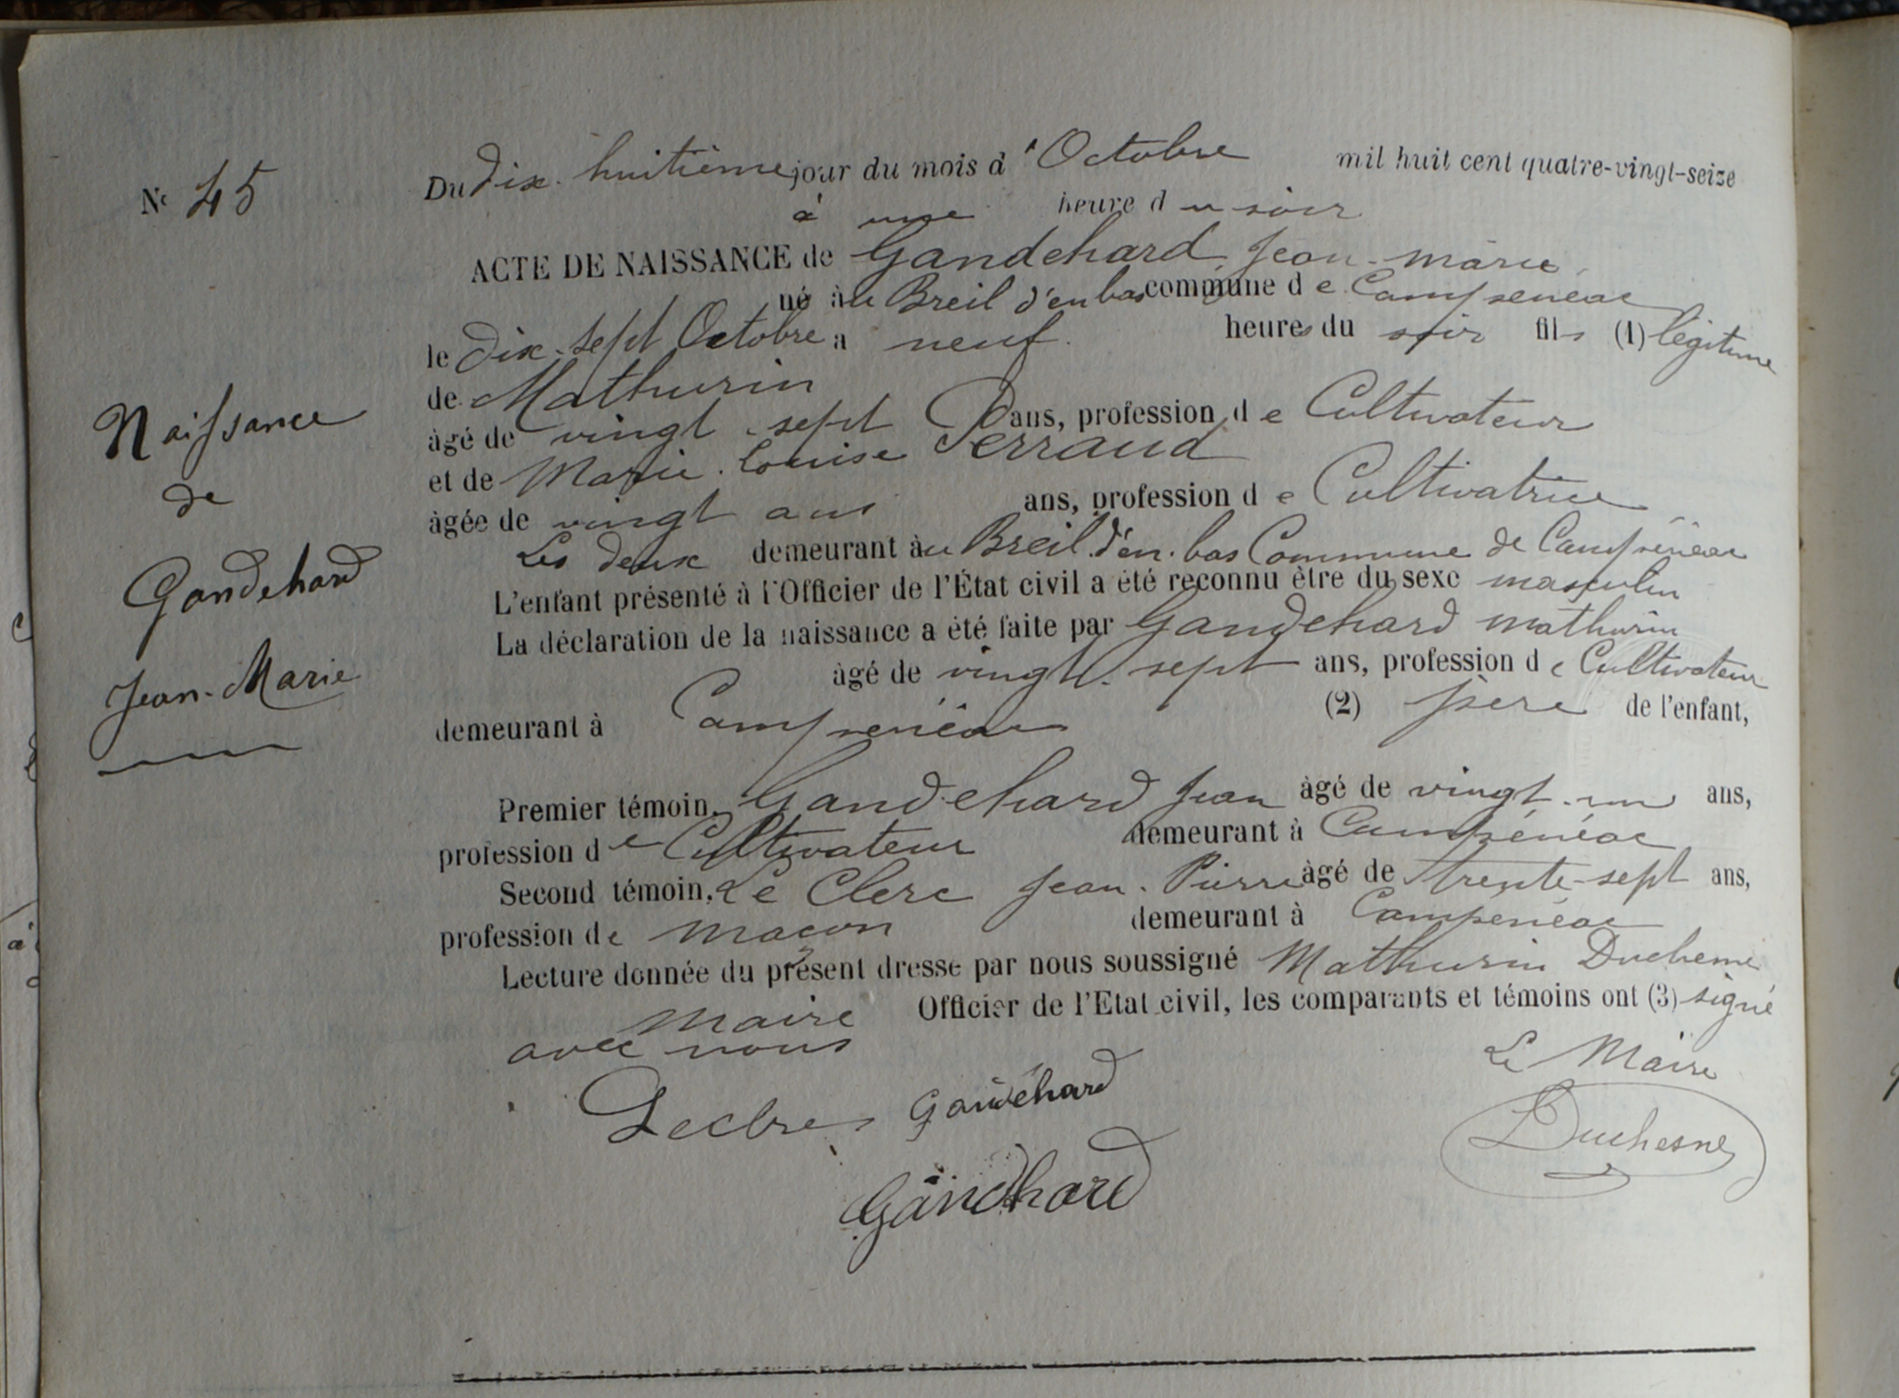 Nº 45
Naissance
de
Gandehard
Jean-Marie
Du dix-huitième jour du mois d'Octobre mil huit cent quatre-vingt-seize
à une heure du soir
ACTE DE NAISSANCE de Gandehard Jean-Marie
né à au Breil d'en bas commune de Campénéac
le dix-sept Octobre à neuf heures du soir fils (1) légitime
de Mathurin
âgé de vingt-sept ans, profession de Cultivateur
et de Marie Louise Perraud
âgée de vingt ans ans, profession de Cultivatrice
Les deux demeurant au Breil d'en bas Commune de Campénéac
L'enfant présenté à l'Officier de l'État civil a été reconnu être du sexe masculin
La déclaration de la naissance a été faite par Gandehard Mathurin
âgé de vingt-sept ans, profession de Cultivateur
demeurant à Campénéac (2) père de l'enfant,
Premier témoin, Gandehard Jean âgé de vingt-un ans,
profession de Cultivateur demeurant à Campénéac
Second témoin, Le Clerc Jean-Pierre âgé de trente-sept ans,
profession de maçon demeurant à Campénéac
Lecture donnée du présent dressé par nous soussigné Mathurin Duchesne
Maire Officier de l'Etat civil, les comparants et témoins ont (3) signé
avec nous
Le Maire
Leclrc Gandéhard
Duchesne
Gandhard